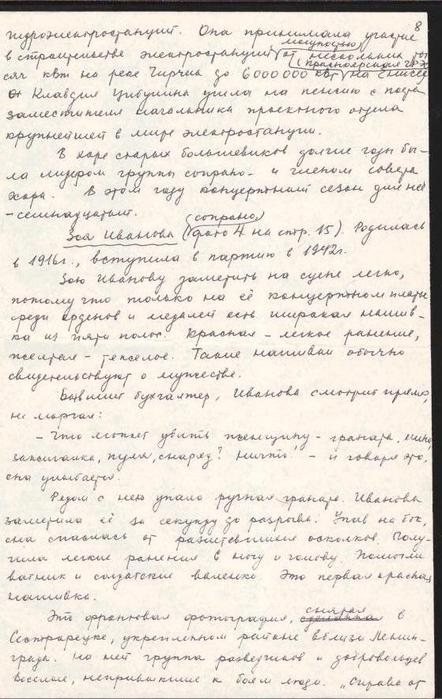 8
гидроэлектростанций. Она принимала участие
в строительстве электростанций от нескольких
мощностью
(Красноярская ГЭС)
сяч квт на реке Чирчик до 6000000 квт на Енисее
Клавдия Цибулина ушла на пенсию с поста
заместителя начальника проектного отдела
крупнейшей в мире электростанции.
В хоре старых большевиков долгие годы бы-
ла лидером группы сопрано - и членом совета
хора. В этом году концертный сезон для неё
- семнадцатый.
(сопрано)
Зоя Иванова (фото 4 на стр. 15). Родилась
в 1916г., вступила в партию в 1942г.
Зою Иванову заметить на сцене легко,
потому что только на её концертном платье
среди орденов и медалей есть широкая нашив-
ка из пяти полос. Красная - легкое ранение,
желтая - тяжелое. Такие нашивки обычно
свидетельствуют о мужестве.
Бывший бухгалтер, Иванова смотрит прямо,
не моргая:
- Что может убить женщину - граната, мина,
зажигалка, пуля, снаряд? Ничто! - и говоря это,
она улыбается.
Рядом с нею упала ручная граната. Иванова
заметила её за секунду до разрыва. Упав на бок,
она спаслась от разлетевшихся осколков. Полу-
чила легкие ранения в ногу и голову. Помогли
ватник и солдатские валенки. Это первая красная
нашивка.
Это фронтовая фотография, снятая в
Сестрорецке, укрепленном районе вблизи Ленин-
града. На ней группа разведчиков и добровольцев
Веселые, непривыкшие к боям люди. „Справа от